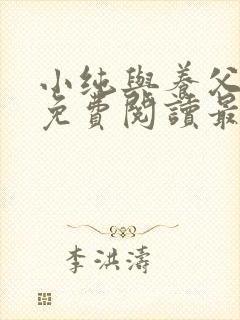 小纯與養父
免費閱讀最
李洪濤